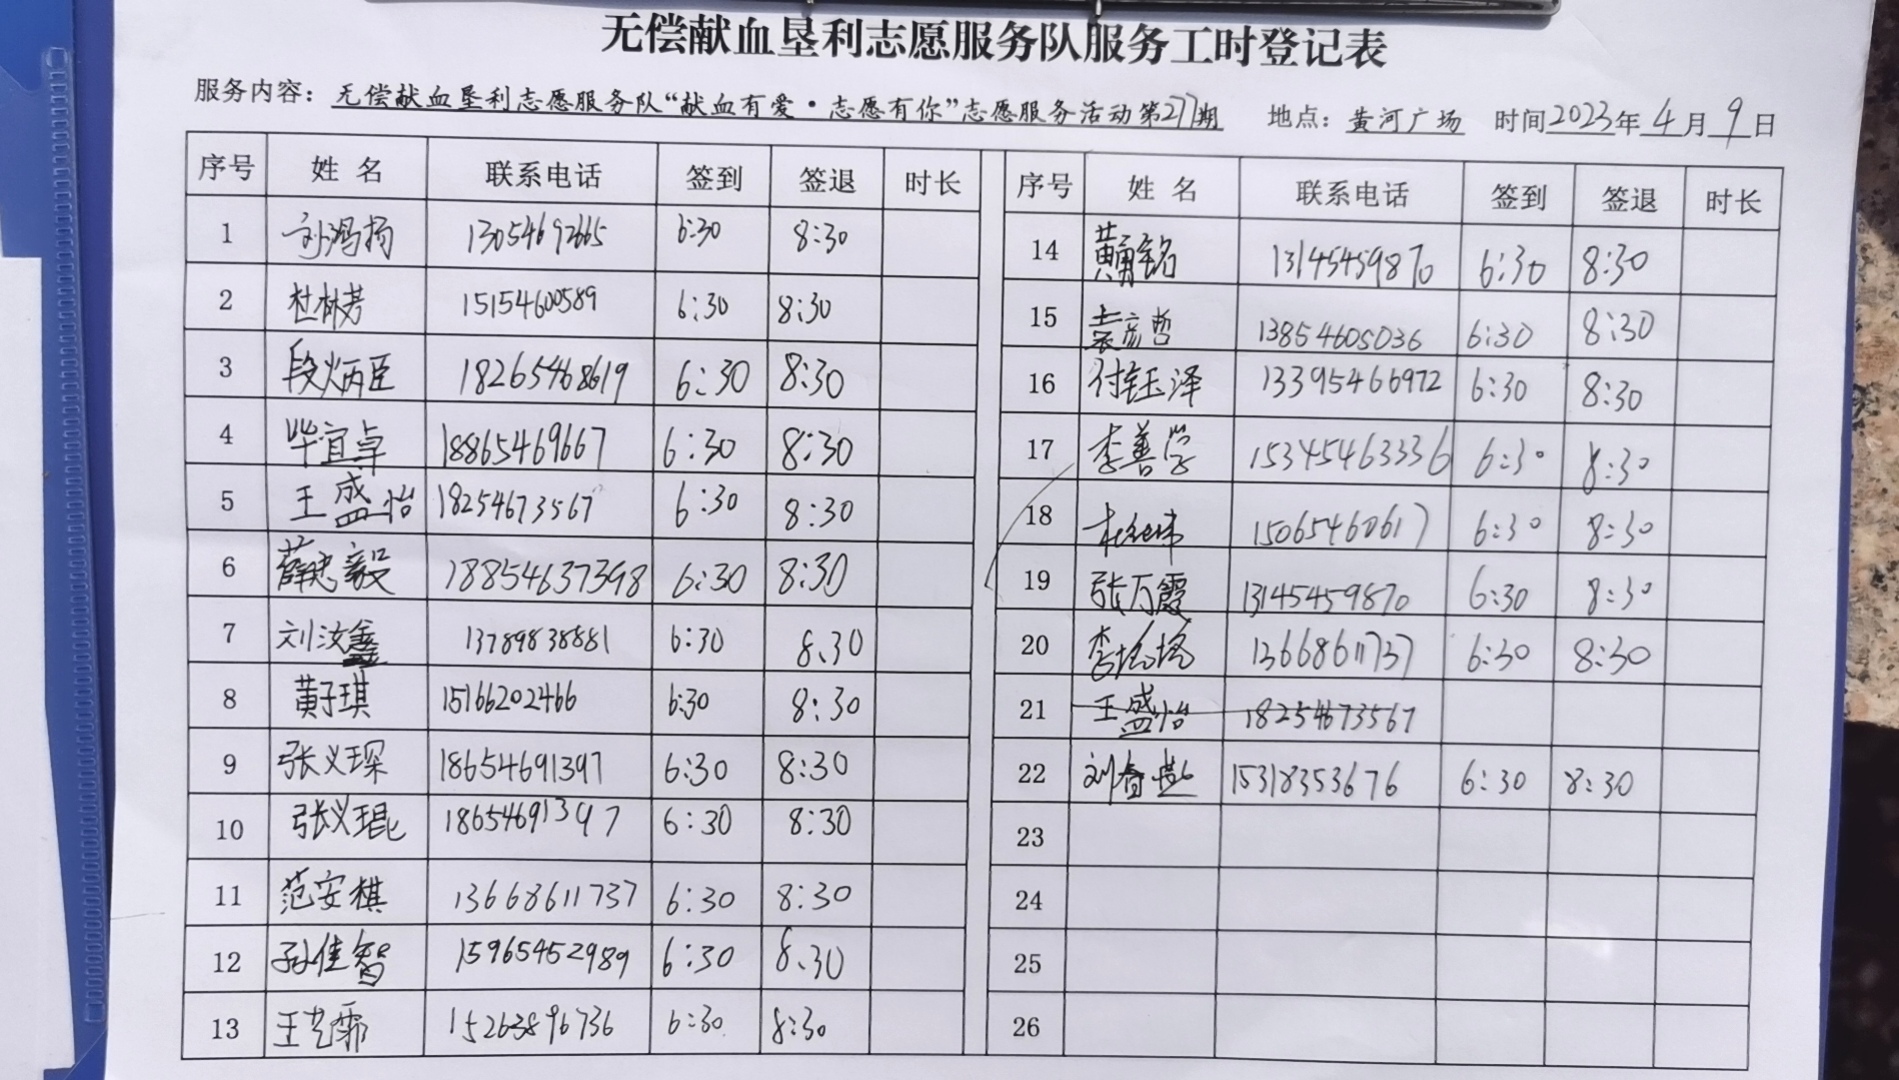 无偿献血垦利志愿服务队服务工时登记表
服务内容：无偿献血垦利志愿服务队“献血有爱·志愿有你”志愿服务活动第277期 地点：黄河广场 时间2023年4月9日
序号 姓名 联系电话 签到 签退 时长 序号 姓名 联系电话 签到 签退 时长
1 刘鸿扬 13054692665 6:30 8:30
2 杜林芳 15154600589 6:30 8:30
3 段炳臣 18265468619 6:30 8:30
4 毕宜卓 18865469667 6:30 8:30
5 王盛怡 18254673567 6:30 8:30
6 薛忠毅 18854637398 6:30 8:30
7 刘汝鑫 13789838881 6:30 8.30
8 黄子琪 15166202466 6:30 8:30
9 张义琛 18654691397 6:30 8:30
10 张义琨 18654691397 6:30 8:30
11 范安棋 13668611737 6:30 8:30
12 孙佳智 15965452989 6:30 8.30
13 王艺霏 15263896736 6:30 8:30
14 黄铭 13145459870 6:30 8:30
15 袁彦哲 13854605036 6:30 8:30
16 付钰泽 13395466972 6:30 8:30
17 李善学 15345463336 6:30 8:30
18 15065460617 6:30 8:30
19 张万霞 13145459870 6:30 8:30
20 李杨杨 13668611737 6:30 8:30
21 王盛怡 18254673567
22 刘春 15318353676 6:30 8:30
23
24
25
26